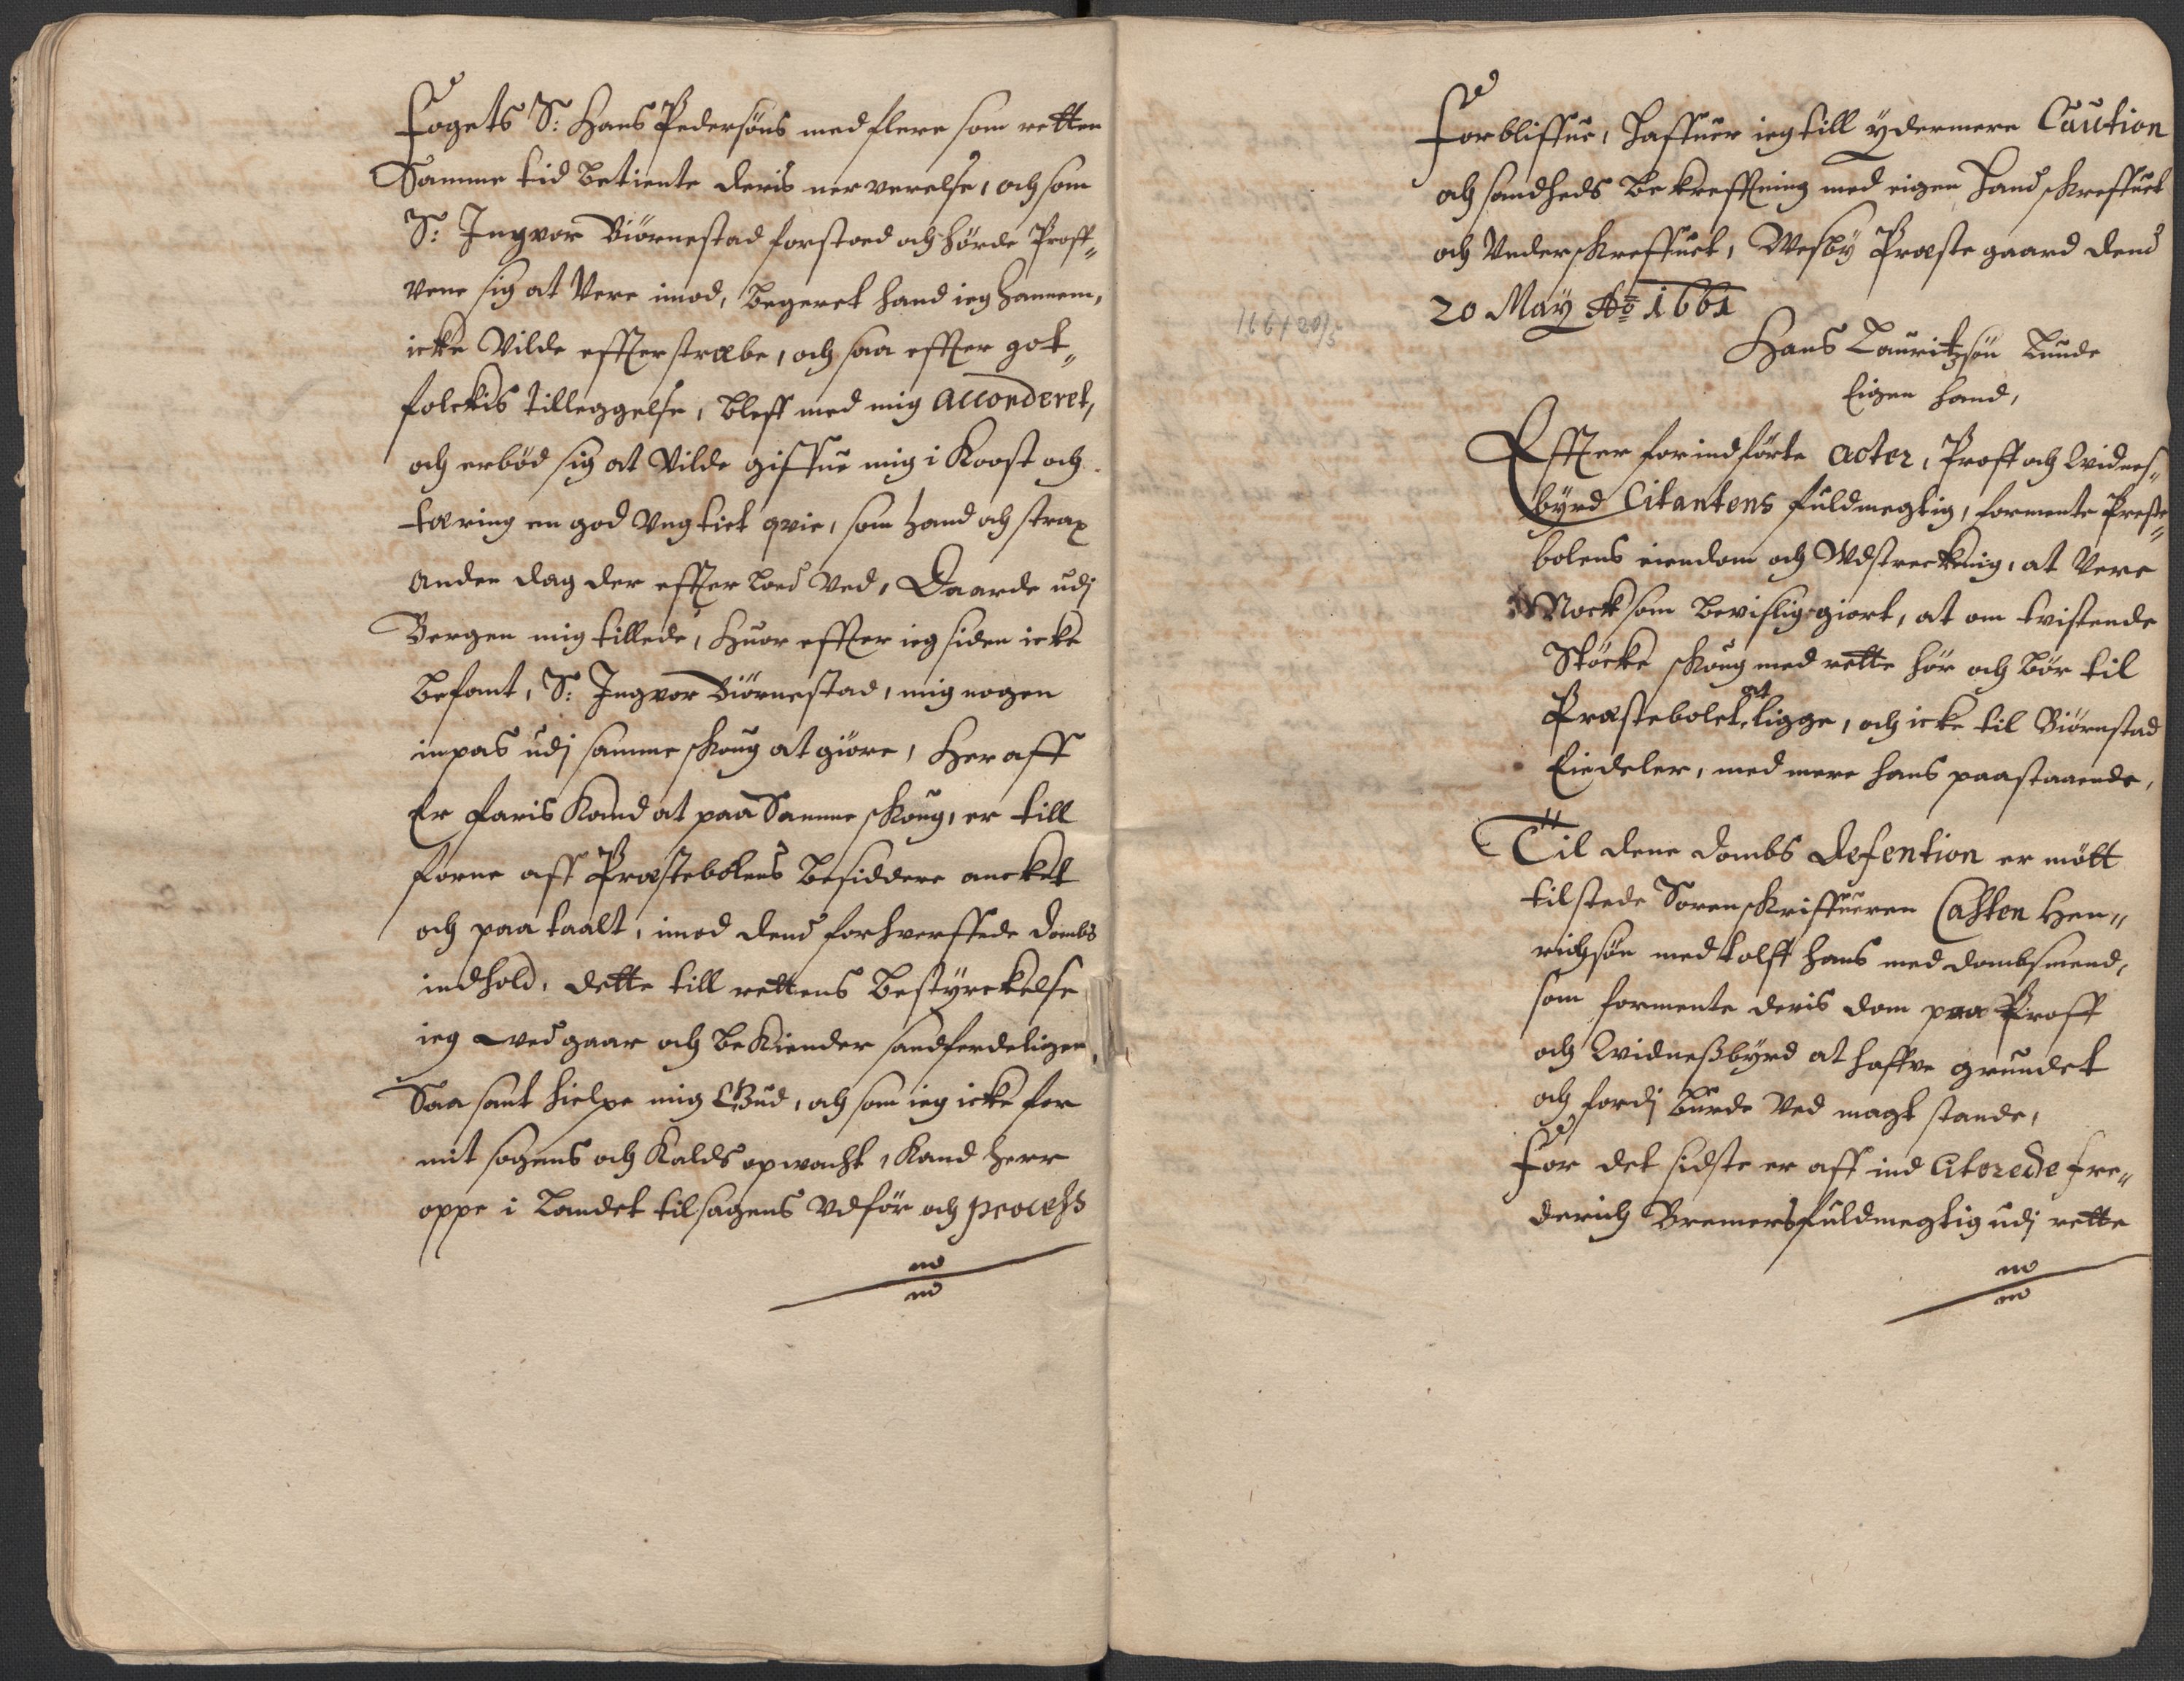 Fogets S: Hans Pedersøns med flere som retten
Samme tid betiente deris nerverelse, och som
S: Ingvor Biörnestad forstoed och hörde Proff„
vene sig at Vere imod, begeret hand ieg hannem,
icke Vilde effterstræbe, och saa effter got„
folckis tilleggelse, bleff med mig accorderet,
och erböd sig at Vilde giffue mig i Koost och
tæring en god Vng tiet qvie, som hand och strax
anden dag der effter loed Ved, Daarde udj
Bergen mig tillede, huor effter ieg siden icke
befant, S: Ingvor Biörnestad, mig nogen
inpas udj samme skoug at giöre, Her aff
Er faris Kand at paa Samme skoug, er till
forne aff Præstebolens besiddere ancket
och paa taalt, imod dend forhverffede dombs
indhold, dette till rettens bestyrckelse
ieg ved gaar och bekiender sandferdeligen,
Saa sant hielpe mig Gud, och som ieg icke for
mit sogens och Kalds opwacht, Kand herr
oppe i Landet til sagens Vdför och process
Forbliffue, Haffuer ieg till ydermere Caution
och sandheds bekreffning med eigen Hand skreffuet
och Vnderskreffuet, Wesby Præste gaard dend
20 May Ao 1661
1661 20/5
Hans Lauritzsön Lunde
Eigen hand,
Effter forindförte acter, Proff och Vidnes„
byrd Citantens fuldmegtig, formente Preste„
bolens eiendom och Udstreckning, at Vere
Nock som bevislig giort, at om tvistende
Stöcke skoug med rette hör och bör til
Præstebolet at ligge, och icke til Biörnstad
Eiedeler, med mere hans paastaaende,
Til dene dombs defention er mött
tilstede Sorenskriffueren Casten Hen„
richsön med tolff hans med dombsmend,
som formente deris dom paa Proff
och Vidneßbyrd at haffve grundet
och fordj burde Ved magt stande,
For det sidste er aff ind Citerede Fre„
derich Bremers fuldmegtig udj rette